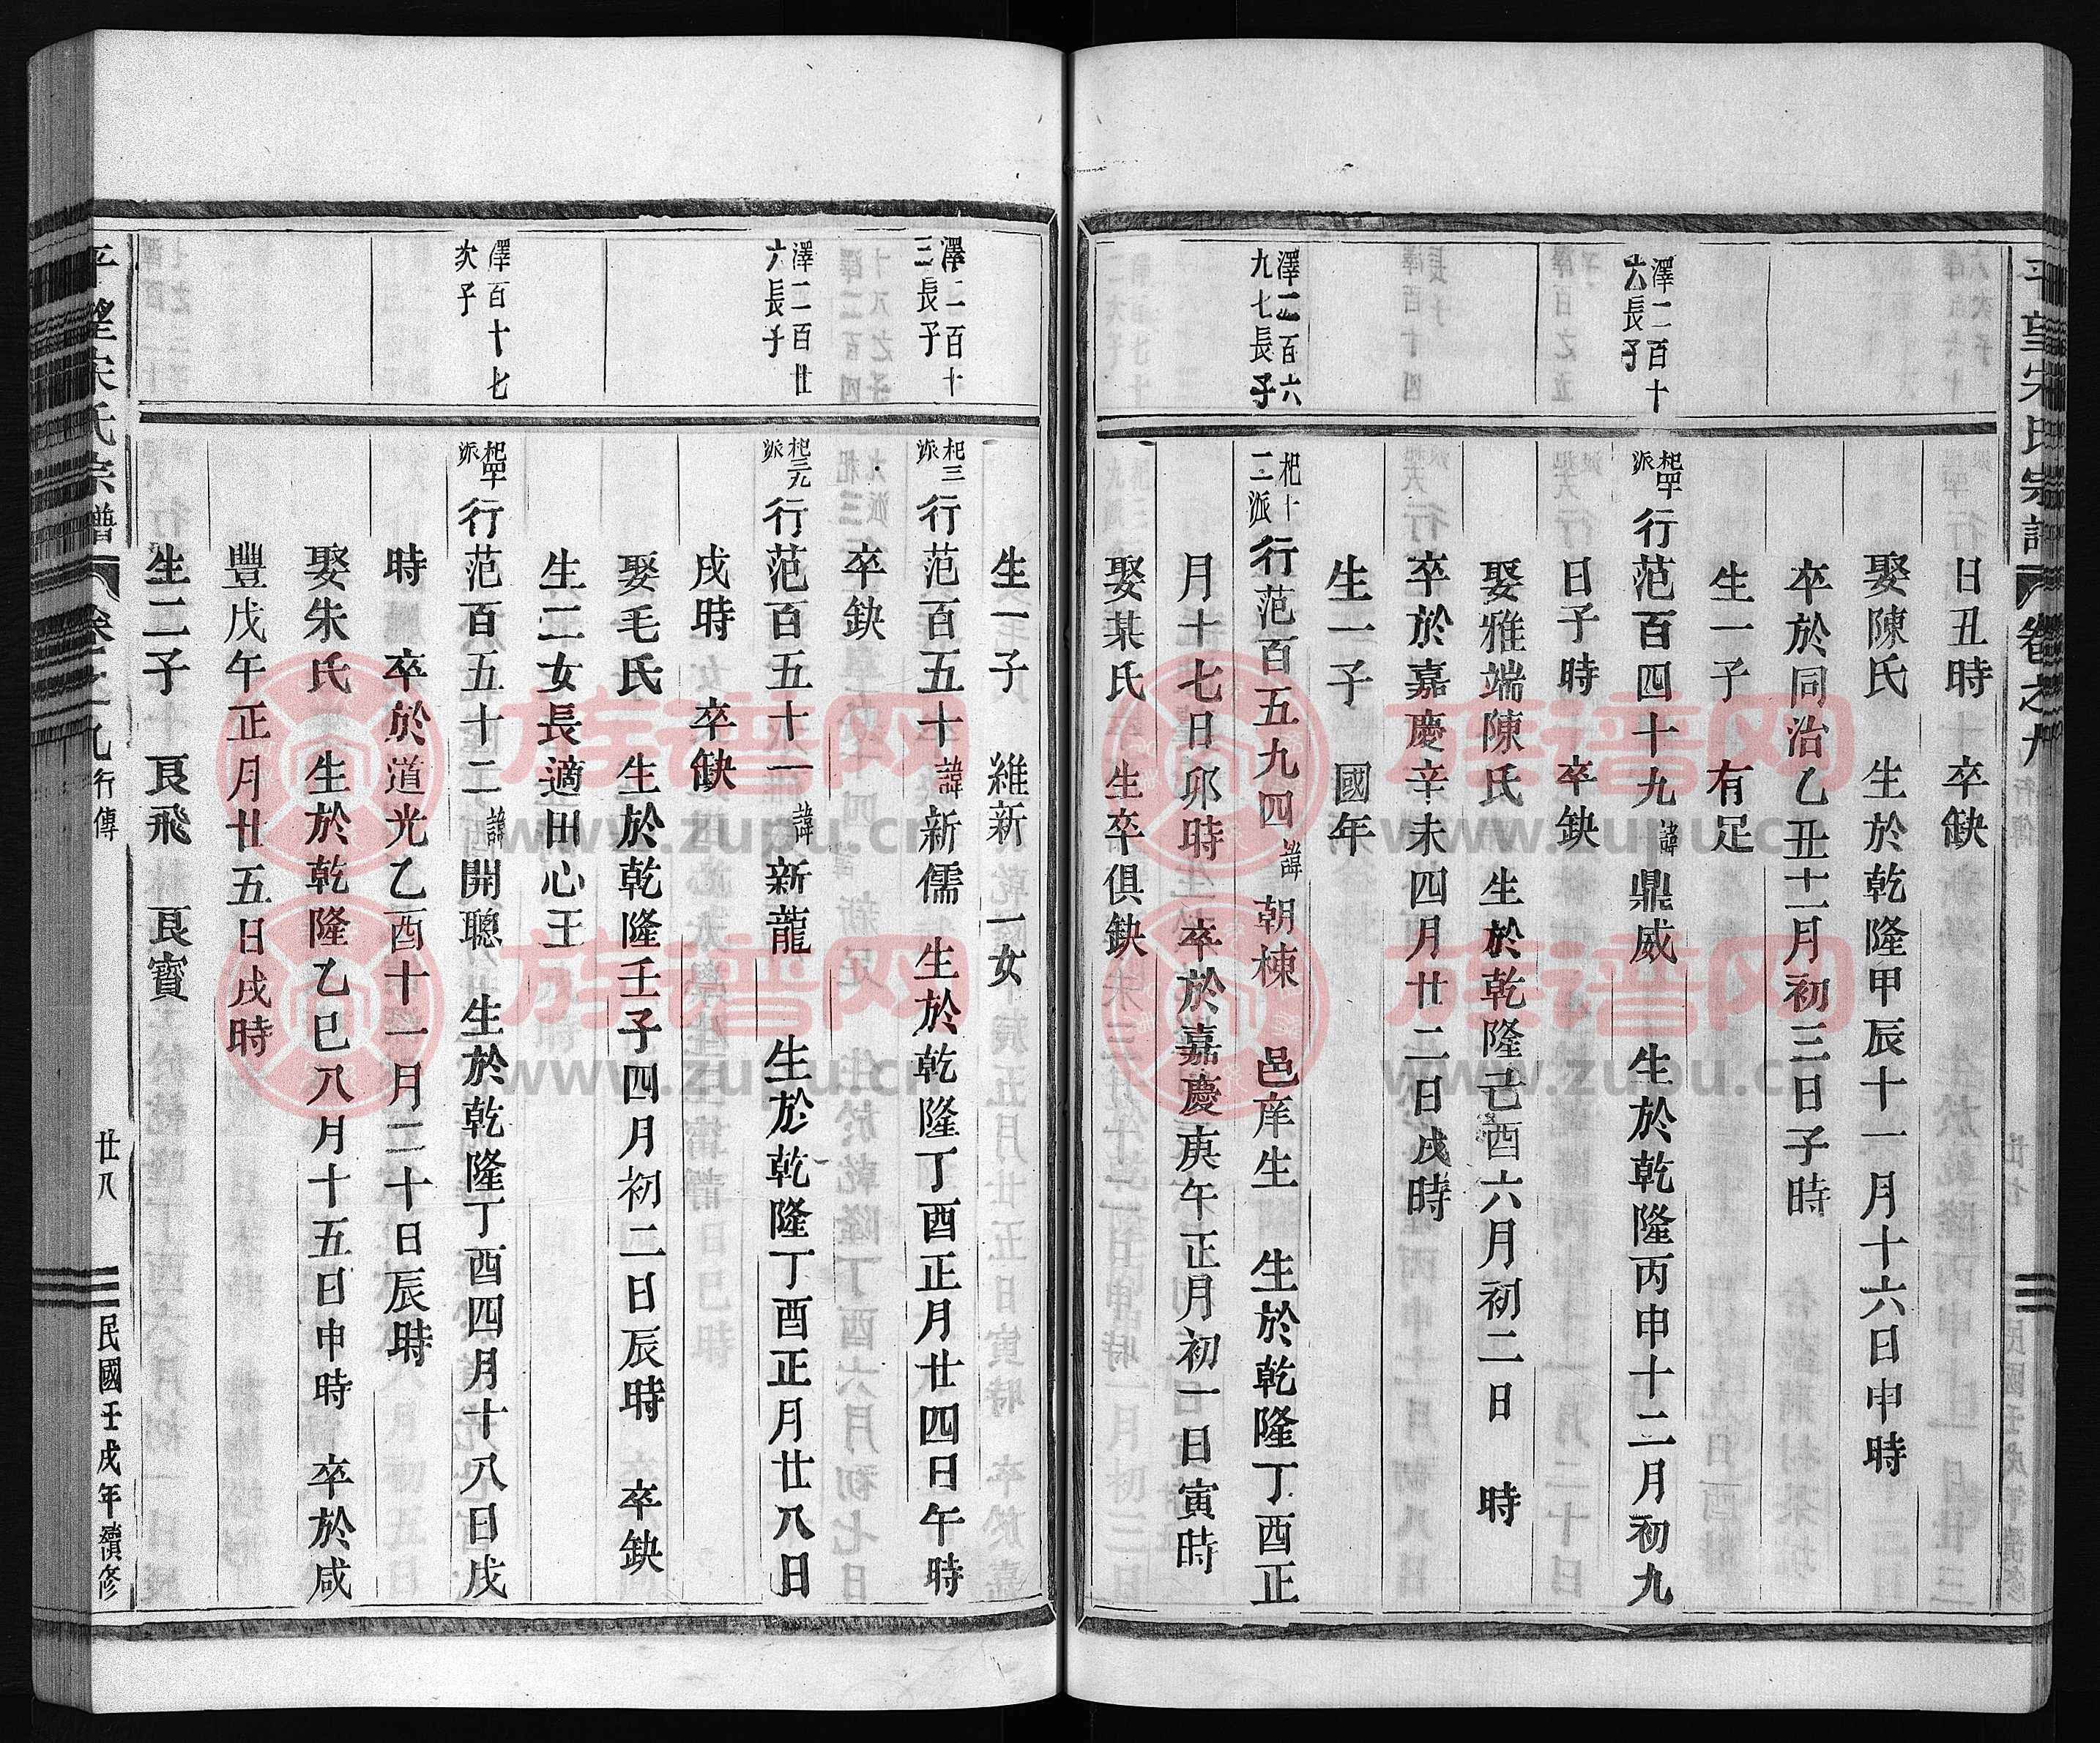 平望宋氏宗譜
卷之九
日丑時 卒缺
娶陳氏 生於乾隆甲辰十一月十六日申時
卒於同治乙丑十二月初三日子時
生一子 有足
澤二百十
六長子
派
行范百四十九諱鼎威 生於乾隆丙申十二月初九
日子時 卒缺
娶雅端陳氏 生於乾隆己酉六月初二日 時
卒於嘉慶辛未四月廿二日戌時
生一子 國年
澤二百六
九七長子
杞十
二派
行范百五九四諱朝棟 邑庠生 生於乾隆丁酉正
月十七日卯時 卒於嘉慶庚午正月初一日寅時
娶某氏 生卒俱缺
生一子 維新 一女
澤二百十
三長子
杞三
派
行范百五十諱新儒 生於乾隆丁酉正月廿四日午時
卒缺
澤二百廿
六長子
派
行范百五十一諱新龍 生於乾隆丁酉正月廿八日
戌時 卒缺
娶毛氏 生於乾隆壬子四月初二日辰時 卒缺
生二女長適田心王
澤百十七
次子
派
行范百五十二諱開聰 生於乾隆丁酉四月十八日戌
時 卒於道光乙酉十一月二十日辰時
娶朱氏 生於乾隆乙巳八月十五日申時 卒於咸
豐戊午正月廿五日戌時
生二子 良飛 良寶
平望宋氏宗譜
行傳
廿八
民國壬戌年續修
族譜网
www.zupu.cn
族譜网
www.zupu.cn
族譜网
www.zupu.cn
族譜网
www.zupu.cn